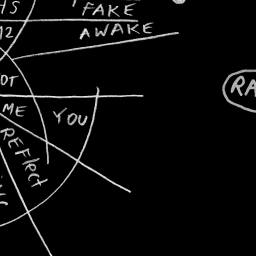 HS
FAKE
12
AWAKE
OT
RA
ME
YOU
REFlect